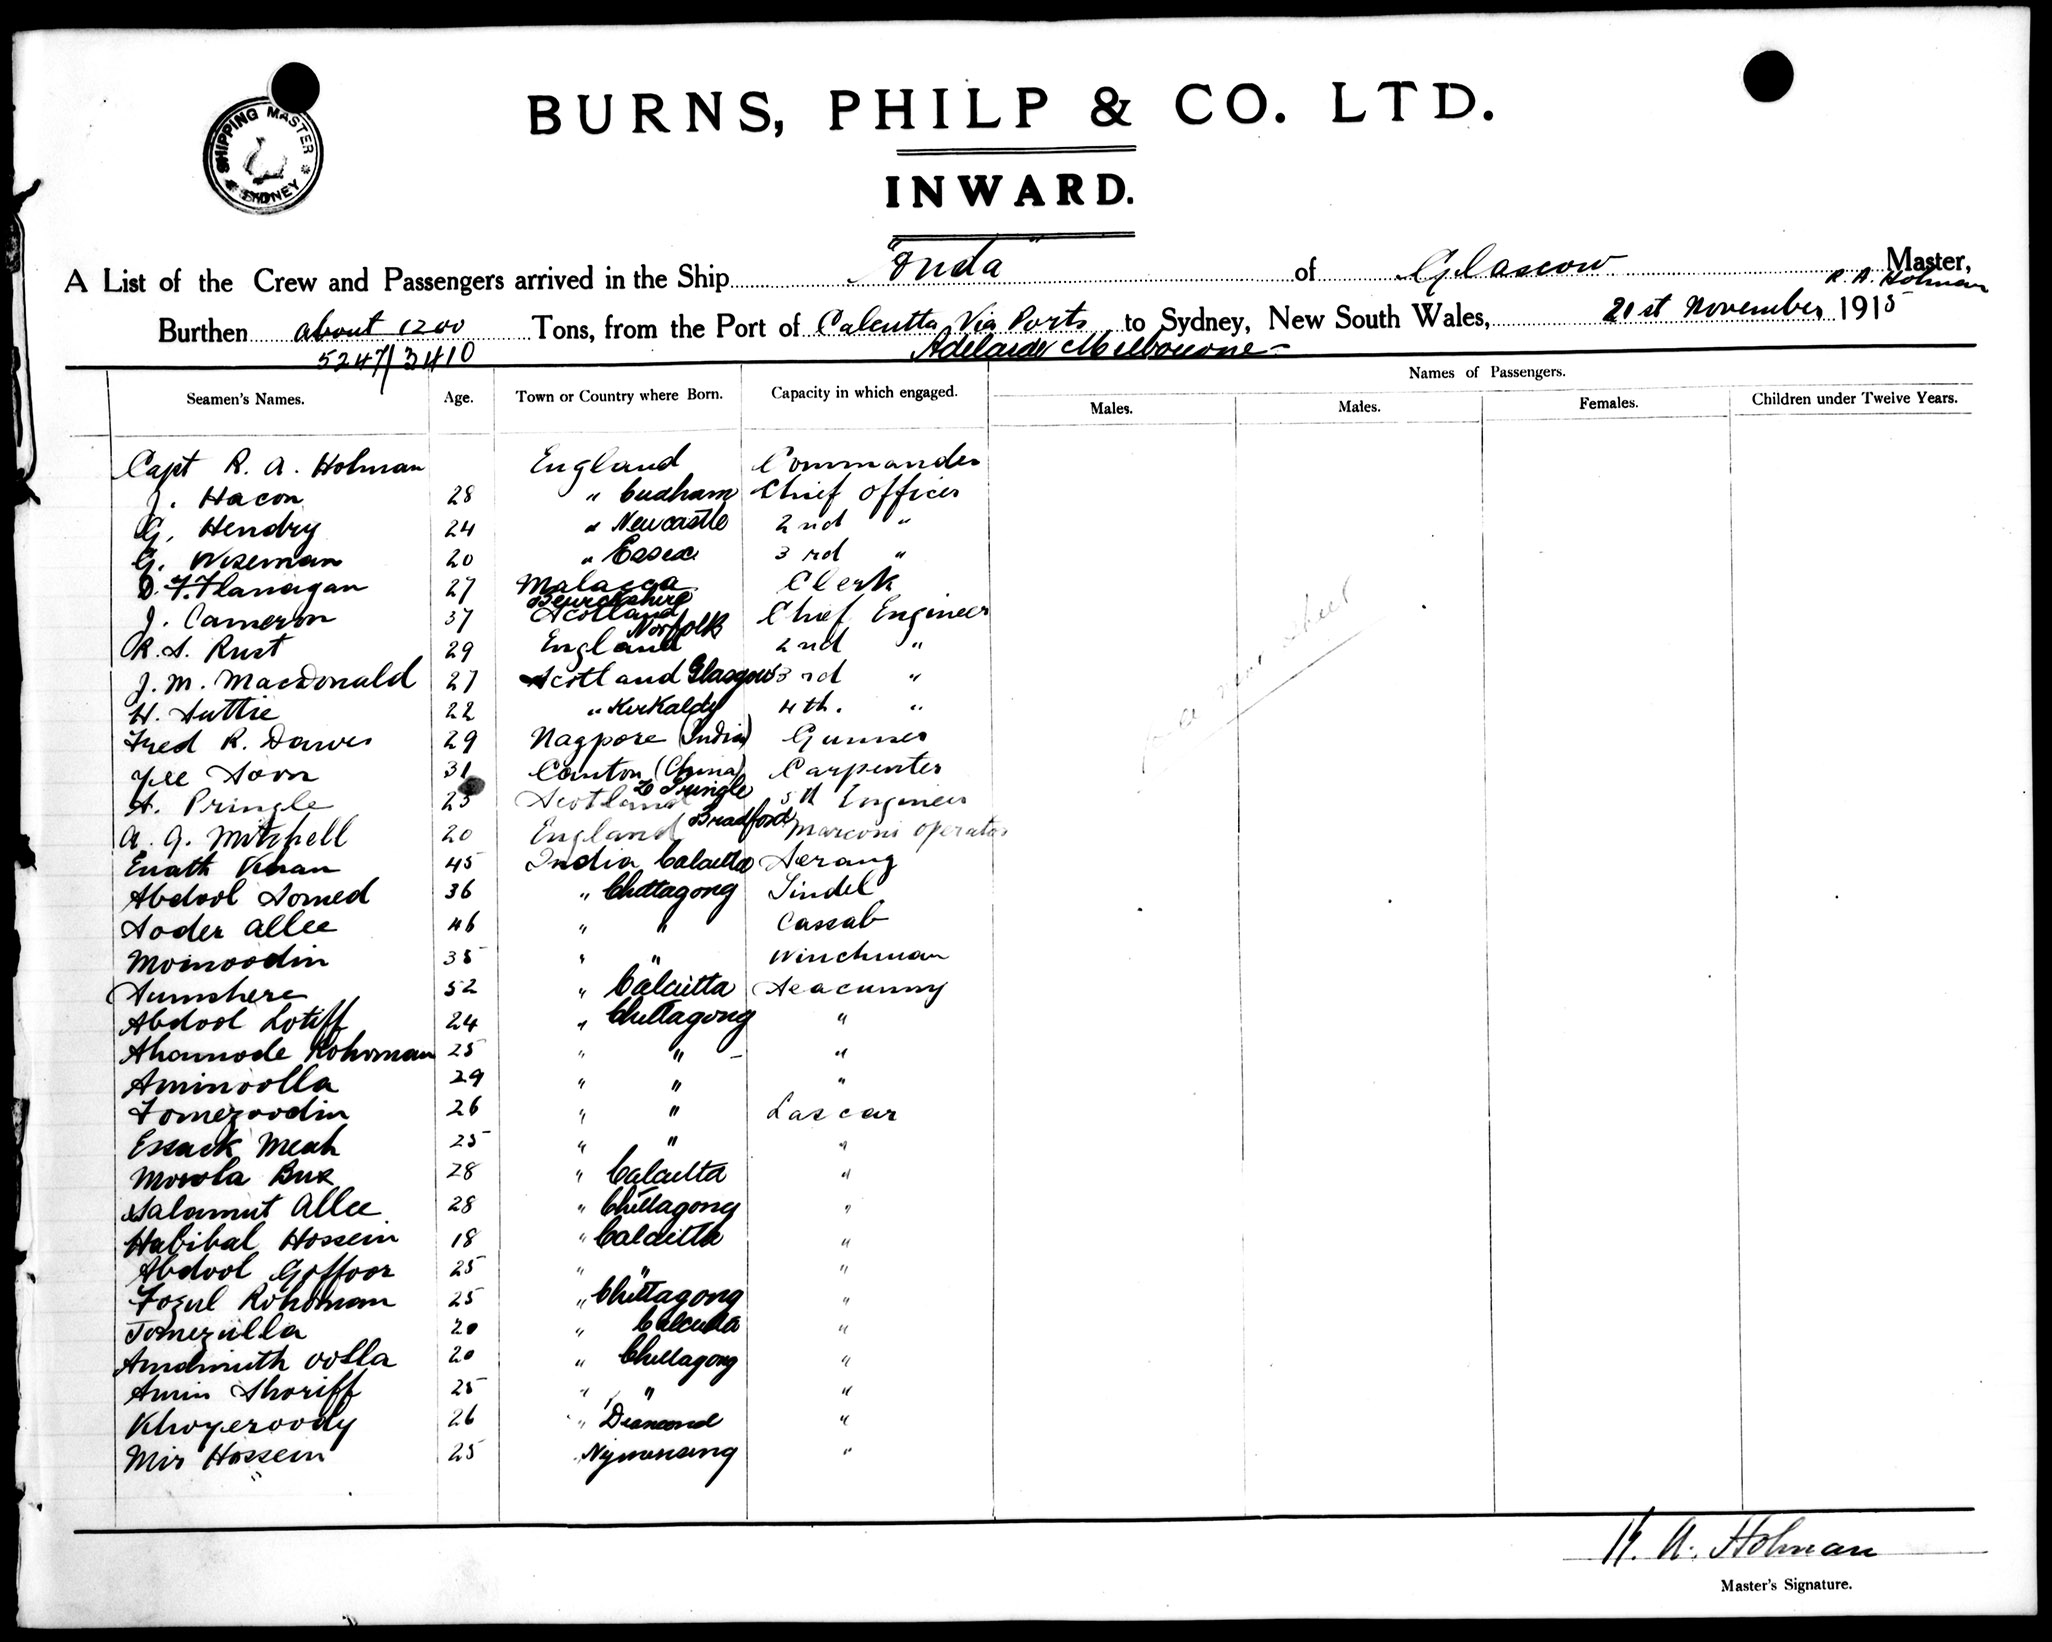 SHIPPING MASTER
SYDNEY
BURNS, PHILP & CO. LTD.
INWARD.
A List of the Crew and Passengers arrived in the Ship "Onda" of Glascow Master, R. A. Holman
Burthen about 1200 Tons, from the Port of Calcutta Via Ports to Sydney, New South Wales, 21st November 1915
5247/3410 Adelaide Melbourne
Names of Passengers.
Seamen's Names. Age. Town or Country where Born. Capacity in which engaged. Males. Males. Females. Children under Twelve Years.
Capt R. A. Holman England Commander
J. Hacon 28 " Cudham Chief Officer
G. Hendry 24 " Newcastle 2nd "
G. Wiseman 20 " Essex 3rd "
D. F. Flanagan 27 Malacca Clerk
J. Cameron 37 Scotland Chief Engineer
R. S. Rust 29 England Norfolk 2nd "
J. M. MacDonald 27 Scotland Glasgow 3rd "
H. Suttie 22 " Kirkaldy 4th. "
Fred R. Dawes 29 Nagpore (India) Gunner
Yee Soon 31 Canton (China) Carpenter
A. Pringle 25 Scotland 5th Engineer
A. G. Mitchell 20 England Bradford Marconi Operator
Enath Khan 45 India Calcutta Serang
Abdool Somed 36 " Chittagong Tindel
Soder Allee 46 " " Cassab
Momoodin 35 " " Winchman
Sumshere 52 " Calcutta Seacunny
Abdool Lotiff 24 " Chittagong "
Ahamode Rohoman 25 " " "
Aminoolla 29 " " "
Fomezoodin 26 " " Lascar
Essack Meah 25 " " "
Mowla Bux 28 " Calcutta "
Salamut Allee 28 " Chittagong "
Habibal Hossein 18 " Calcutta "
Abdool Goffoor 25 " " "
Fozul Rohoman 25 " Chittagong "
Tomezulla 20 " Calcutta "
Amdmuth oolla 20 " Chittagong "
Amin Shoriff 25 " " "
Khoyeroody 26 " Diamond "
Mir Hossein 25 Nymensing "
R. A. Holman
Master's Signature.